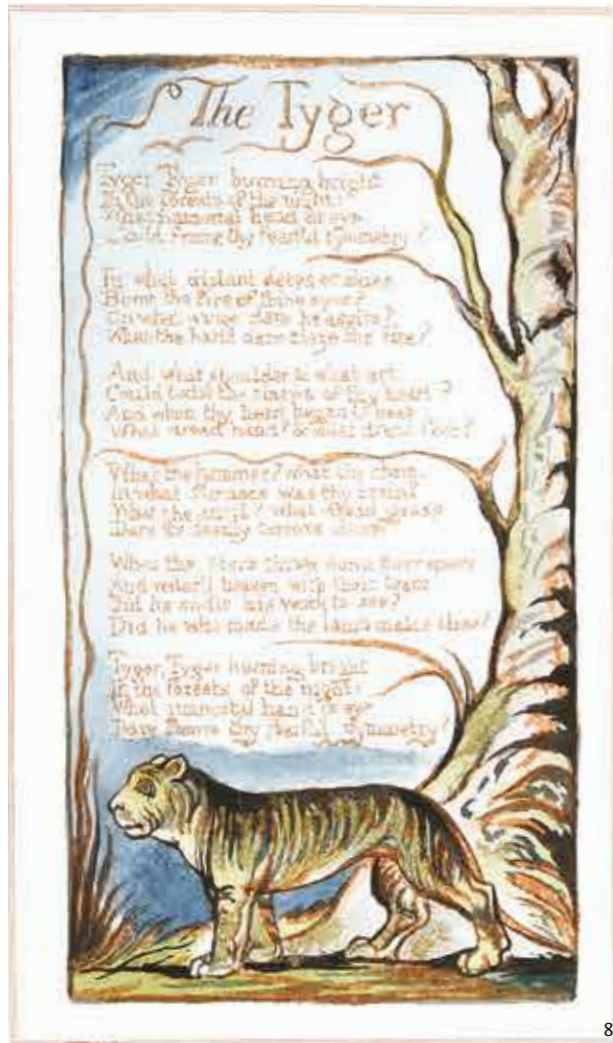 The Tyger
Tyger Tyger burning bright
In the forests of the night:
What immortal hand or eye
Could frame thy fearful symmetry?
In what distant deeps or skies
Burnt the fire of thine eyes?
On what wings dare he aspire?
What the hand dare sieze the fire?
And what shoulder & what art
Could twist the sinews of thy heart?
And when thy heart began to beat
What dread hand? & what dread feet?
What the hammer? what the chain
In what furnace was thy brain
What the anvil? what dread grasp
Dare its deadly terrors clasp?
When the stars threw down their spears
And water'd heaven with their tears
Did he smile his work to see?
Did he who made the Lamb make thee?
Tyger, Tyger burning bright
In the forests of the night:
What immortal hand or eye
Dare frame thy fearful symmetry?
8